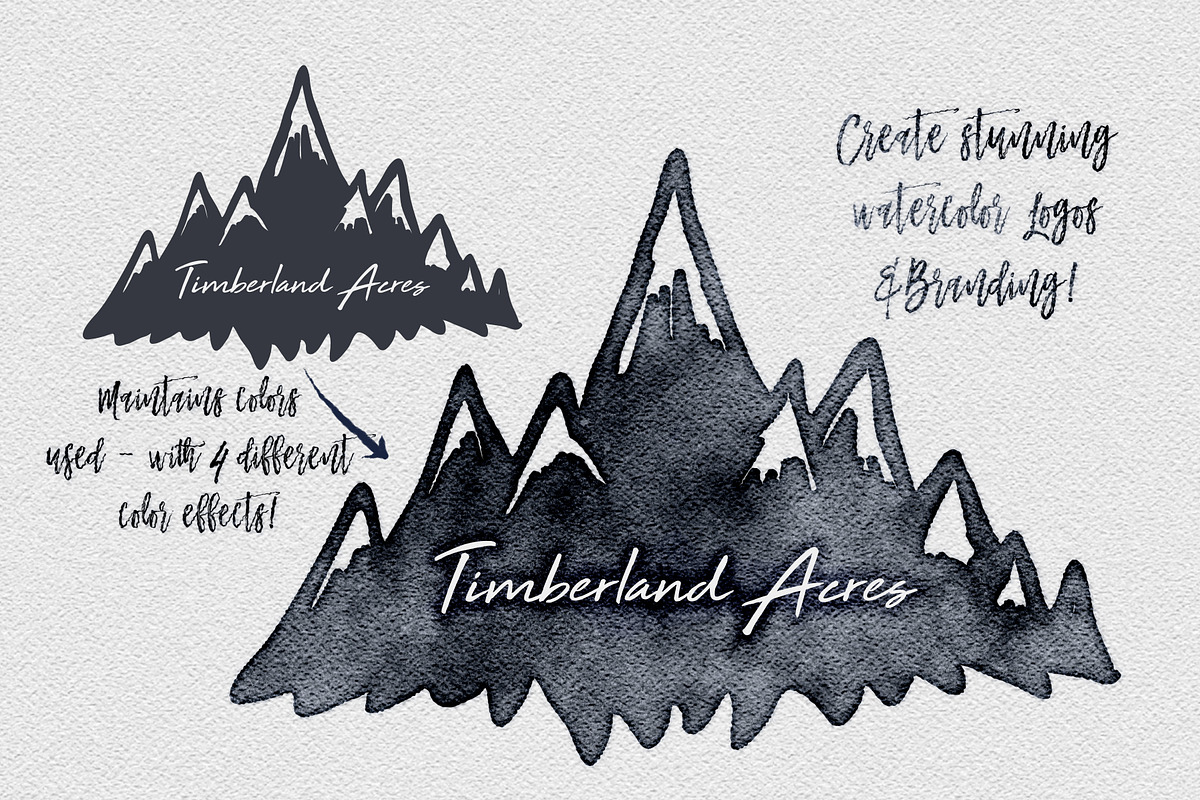 Create stunning
watercolor Logos
& Branding!
Timberland Acres
Maintains colors
used - with 4 different
color effects!
Timberland Acres